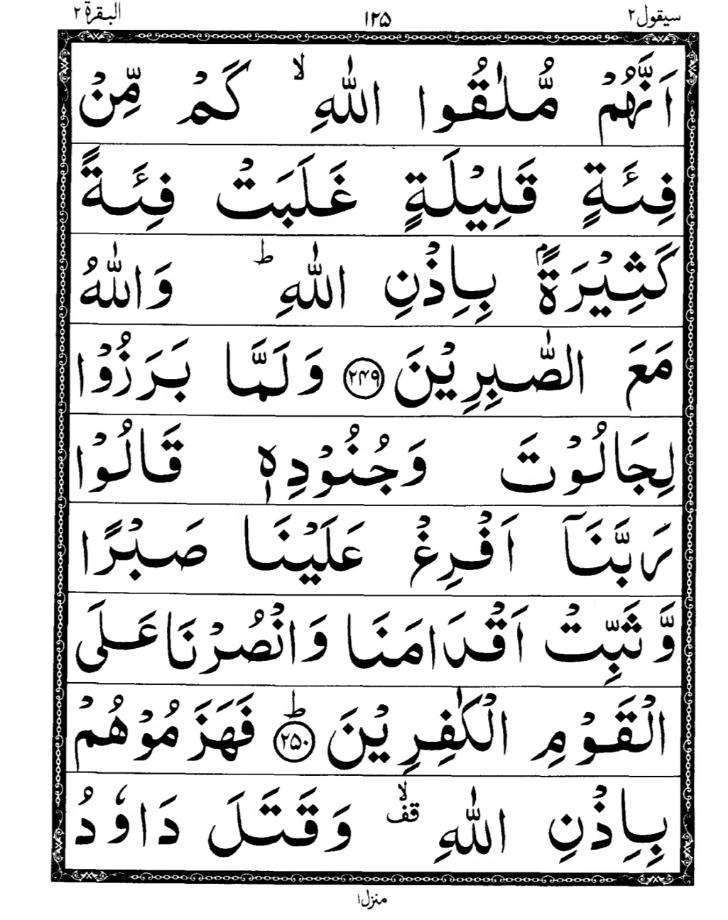 سيقول٢ ١٢٥ البقرة ٢
اَنَّهُمْ مُّلٰقُوا اللّٰهِ ۙ كَمْ مِّنْ
فِئَةٍ قَلِيْلَةٍ غَلَبَتْ فِئَةً
كَثِيْرَةًۢ بِاِذْنِ اللّٰهِ ؕ وَاللّٰهُ
مَعَ الصّٰبِرِيْنَ ﴿۲۴۹﴾ وَلَمَّا بَرَزُوْا
لِجَالُوْتَ وَجُنُوْدِهٖ قَالُوْا
رَبَّنَاۤ اَفْرِغْ عَلَيْنَا صَبْرًا
وَّثَبِّتْ اَقْدَامَنَا وَانْصُرْنَا عَلَى
الْقَوْمِ الْكٰفِرِيْنَ ؕ﴿۲۵۰﴾ فَهَزَمُوْهُمْ
بِاِذْنِ اللّٰهِ ۙقف وَقَتَلَ دَاوٗدُ
منزل١